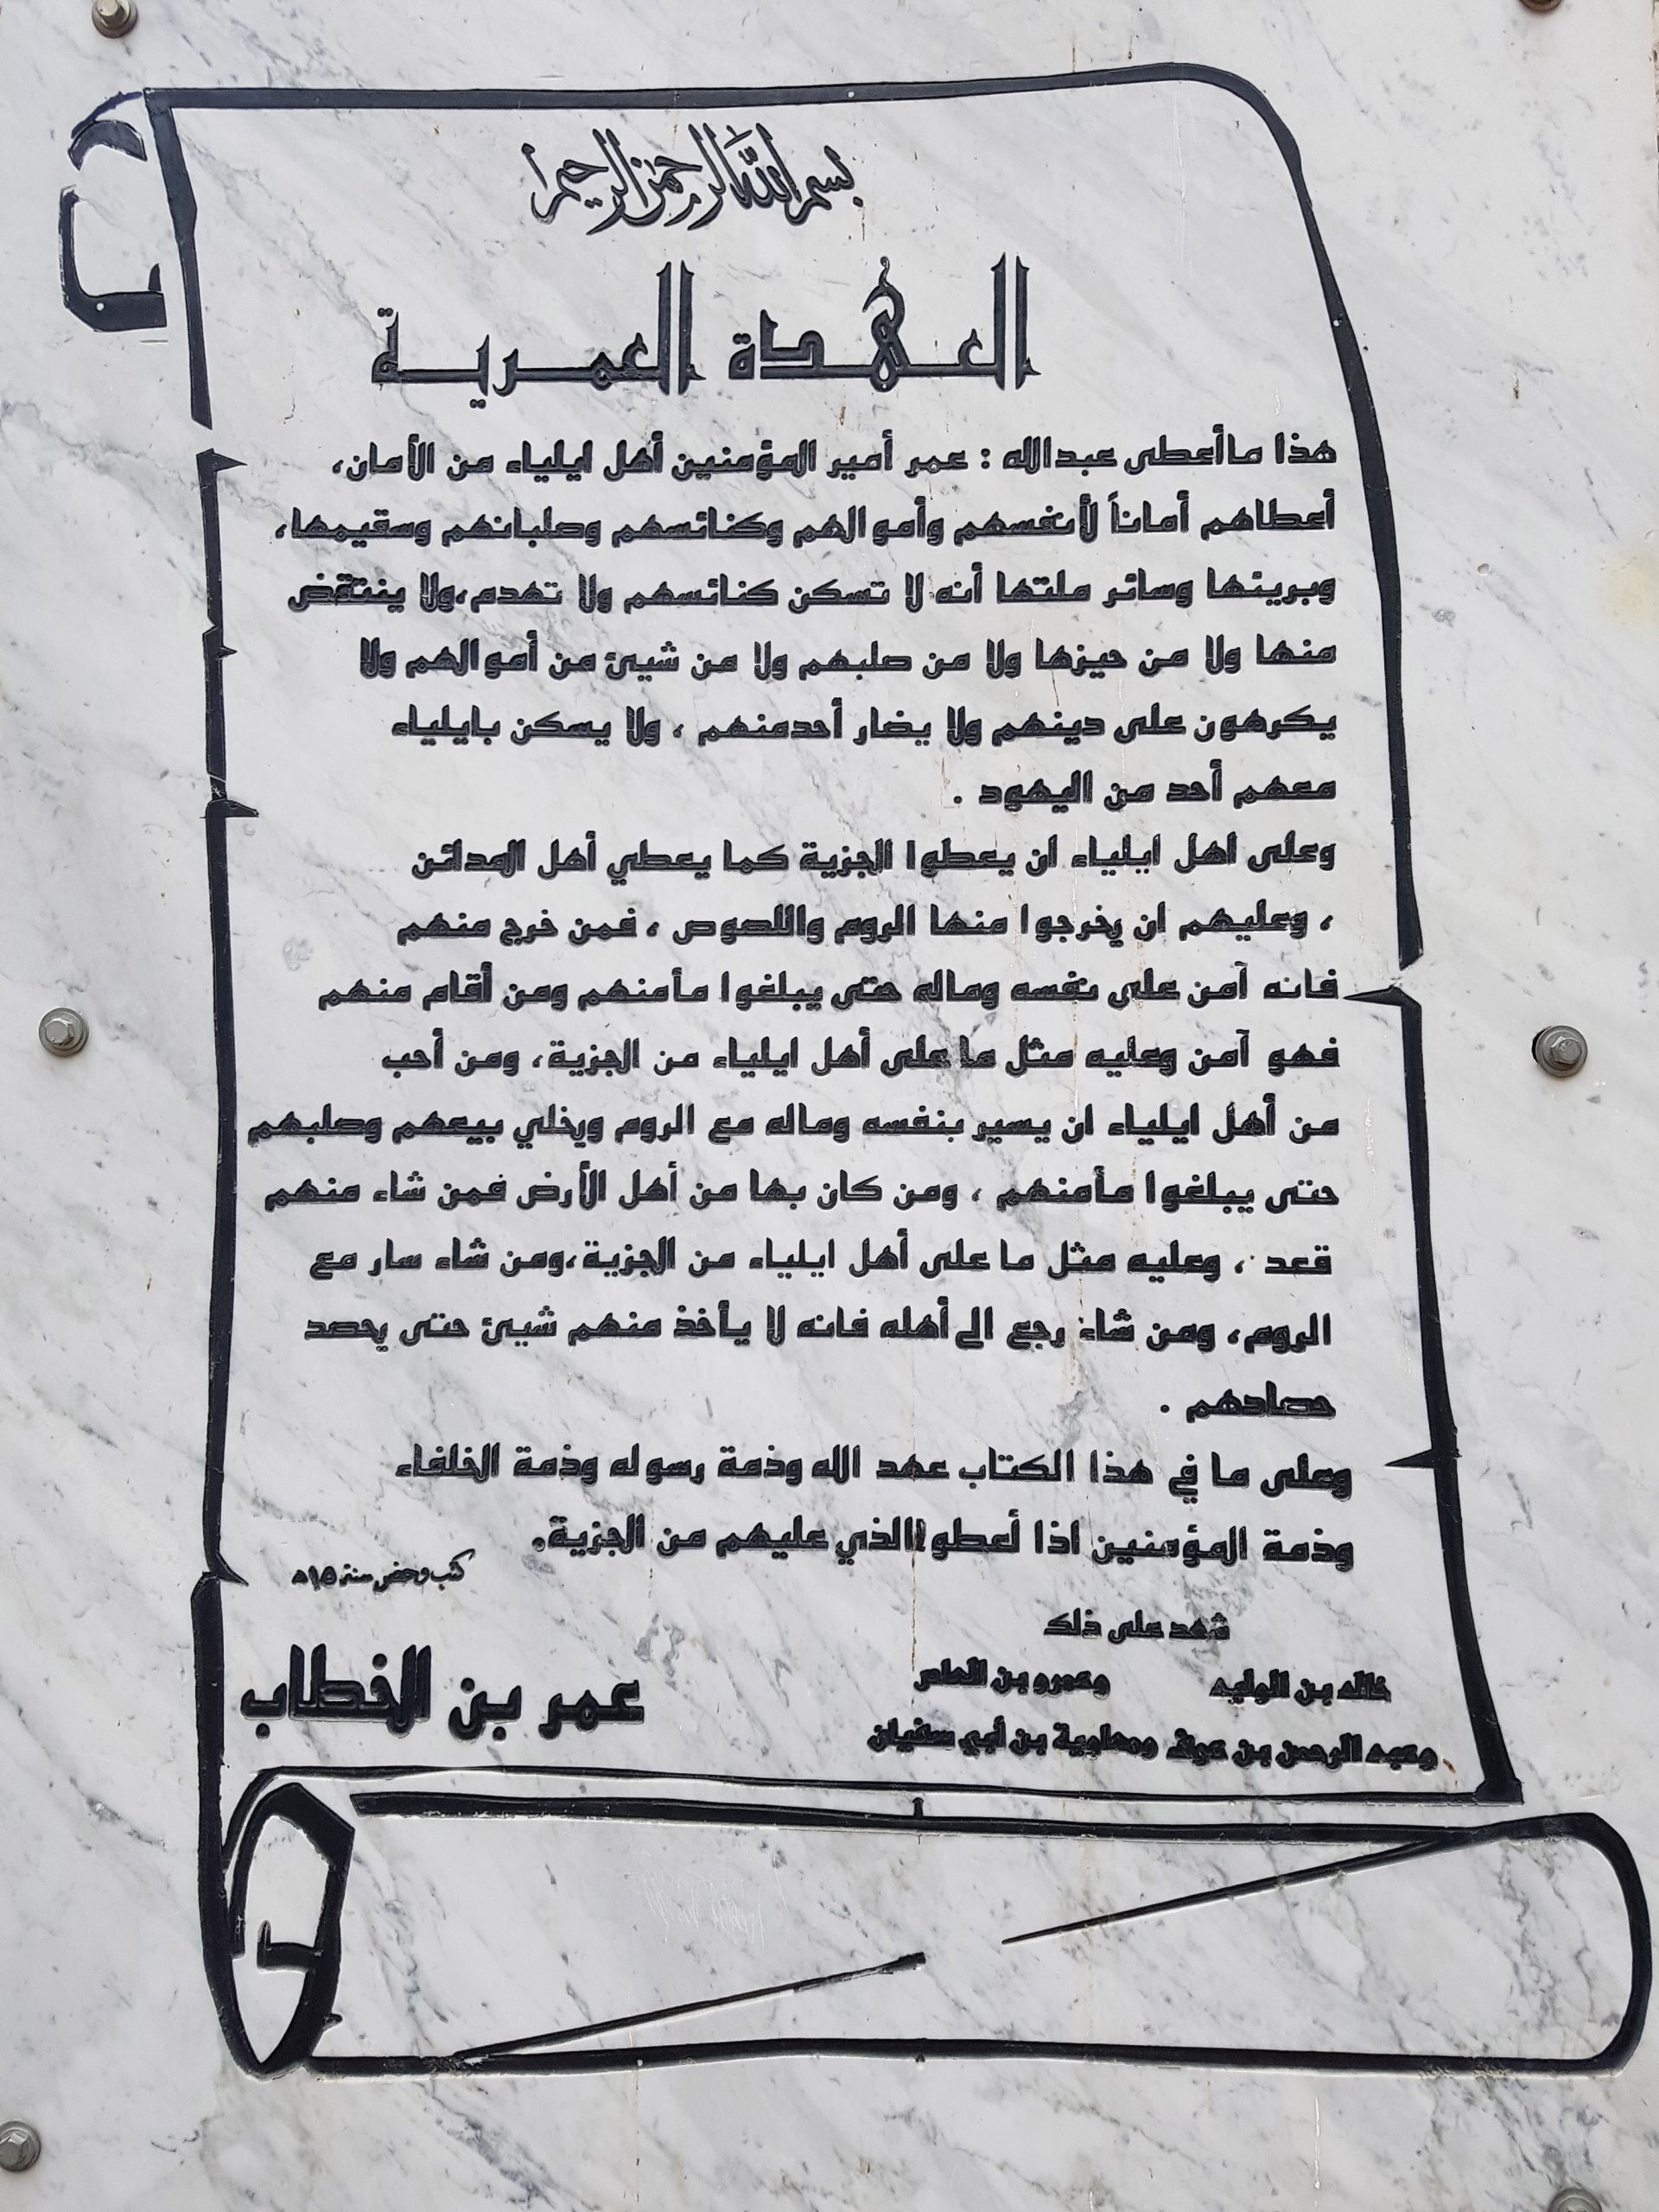 بسم الله الرحمن الرحيم
العهدة العمرية
هذا ماأعطى عبدالله : عمر أمير المؤمنين أهل ايلياء من الأمان،
أعطاهم أماناً لأنفسهم وأموالهم وكنائسهم وصلبانهم وسقيمها،
وبريئها وسائر ملتها أنه لا تسكن كنائسهم ولا تهدم،ولا ينتقض
منها ولا من حيزها ولا من صلبهم ولا من شيئ من أموالهم ولا
يكرهون على دينهم ولا يضار أحدمنهم ، ولا يسكن بايلياء
معهم أحد من اليهود .
وعلى اهل ايلياء ان يعطوا الجزية كما يعطي أهل المدائن
، وعليهم ان يخرجوا منها الروم واللصوص ، فمن خرج منهم
فانه آمن على نفسه وماله حتى يبلغوا مأمنهم ومن أقام منهم
فهو آمن وعليه مثل ما على أهل ايلياء من الجزية، ومن أحب
من أهل ايلياء ان يسير بنفسه وماله مع الروم ويخلي بيعهم وصلبهم
حتى يبلغوا مأمنهم ، ومن كان بها من أهل الأرض فمن شاء منهم
قعد ، وعليه مثل ما على أهل ايلياء من الجزية،ومن شاء سار مع
الروم، ومن شاء رجع الى أهله فانه لا يأخذ منهم شيئ حتى يحصد
حصادهم .
وعلى ما في هذا الكتاب عهد الله وذمة رسوله وذمة الخلفاء
وذمة المؤمنين اذا أعطوا الذي عليهم من الجزية.
كتب وحضر سنة ١٥ه
شهد على ذلك
خالد بن الوليد وعمرو بن العاص
وعبد الرحمن بن عوف ومعاوية بن أبي سفيان
عمر بن الخطاب